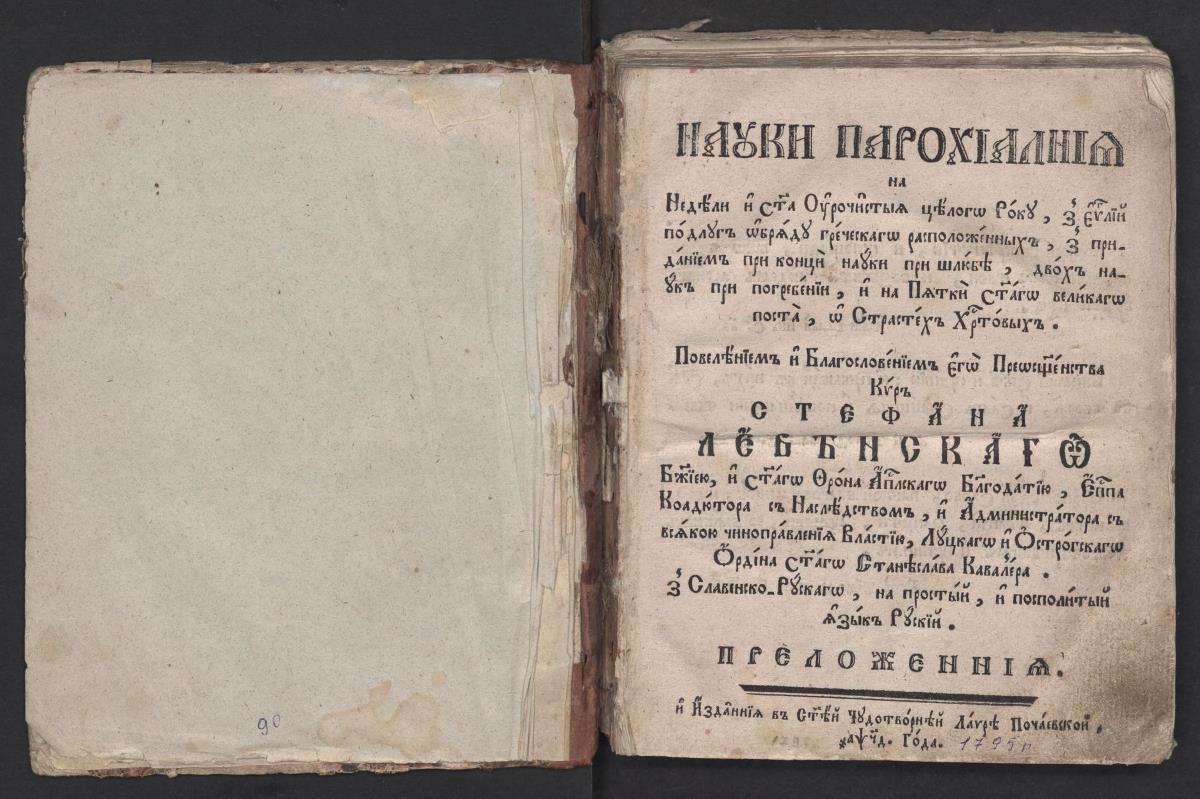 НАУКИ ПАРОХІАЛНІѦ
на
Недѣли и҆ ст҃а Оу҆рочи҆стыѧ цѣ́логѡ Ро́ку, з̾ єѵⷢ҇лїй
по́длугъ ѡ҆брѧ́ду гре́ческагѡ расположе́нныхъ, з̾ при-
да́нїемъ при концѝ нау́ки при шлю́бѣ, дво́хъ на-
у́къ при погребе́нїи, и҆ на Пѧткѝ ст҃а́гѡ вели́кагѡ
поста̀, ѡ҆ Страсте́хъ Хрⷭ҇то́выхъ.
Повелѣ́нїемъ и҆ Благослове́нїемъ є҆гѡ̀ Преѡсщ҃е́нства
Кѵ́ръ
СТЕФА́НА
ЛЄ҆БѢ́НСКАГѠ
Бж҃їею, и҆ ст҃а́гѡ Ѳро́на А҆пⷭ҇лскагѡ Бл҃года́тїю, Є҆пⷭ҇па
Коадю́тора съ Наслѣ́дствомъ, и҆ А҆дминистра́тора съ
всѧ́кою чинопра́вленїѧ Вла́стїю, Лу́цкагѡ и҆ Ѻ҆стро́гскагѡ
Ѻ҆рді́на ст҃а́гѡ Станѣсла́ва Кавале́ра.
з̾ Славенско-Ру́скагѡ, на просты́й, и҆ посполи́тый
ꙗ҆зы́къ Ру́скїй.
ПРЕЛОЖЕННІѦ.
и҆ И҆зда́ннїѧ въ ст҃ѣ́й Чудотво́рнѣй Ла́ѵрѣ Поча́евской,
҂аѱч҃д. Го́да. 1795 р
90